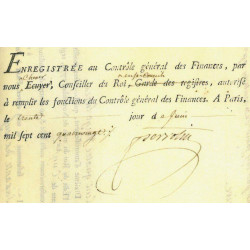 ENREGISTRÉE au Contrôle général des Finances, par
nous Ecuyer, Conseiller du Roi, Garde des registres, autorisé
à remplir les fonctions du Contrôle général des Finances. A Paris,
le trente jour de Juin
mil sept cent